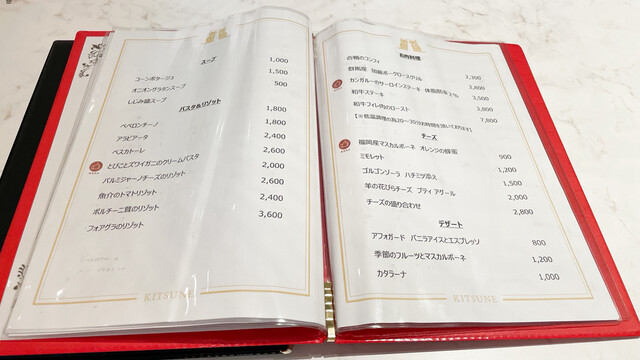 スープ
コーンポタージュ 1,000
オニオングラタンスープ 1,500
しじみ鍋スープ 500
パスタ&リゾット
ペペロンチーノ 1,800
アラビアータ 1,800
ペスカトーレ 2,400
とびことズワイガニのクリームパスタ 2,600
パルミジャーノチーズのリゾット 2,000
魚介のトマトリゾット 2,600
ポルチーニ茸のリゾット 2,400
フォアグラのリゾット 3,600
KITSUNE
お肉料理
合鴨のコンフィ 2,300
群馬産 加藤ポークロースグリル 3,800
カンガルーのサーロインステーキ 体脂肪率2% 3,500
和牛ステーキ 3,800
和牛フィレ肉のロースト 7,800
【※低温調理の為20~30分お時間を頂いております】
チーズ
福岡産マスカルポーネ オレンジの蜂蜜 900
ミモレット 1,200
ゴルゴンゾーラ ハチミツ添え 1,500
羊の花びらチーズ プティアグール 2,000
チーズの盛り合わせ 2,800
デザート
アフォガード バニラアイスとエスプレッソ 800
季節のフルーツとマスカルポーネ 1,200
カタラーナ 1,000
KITSUNE